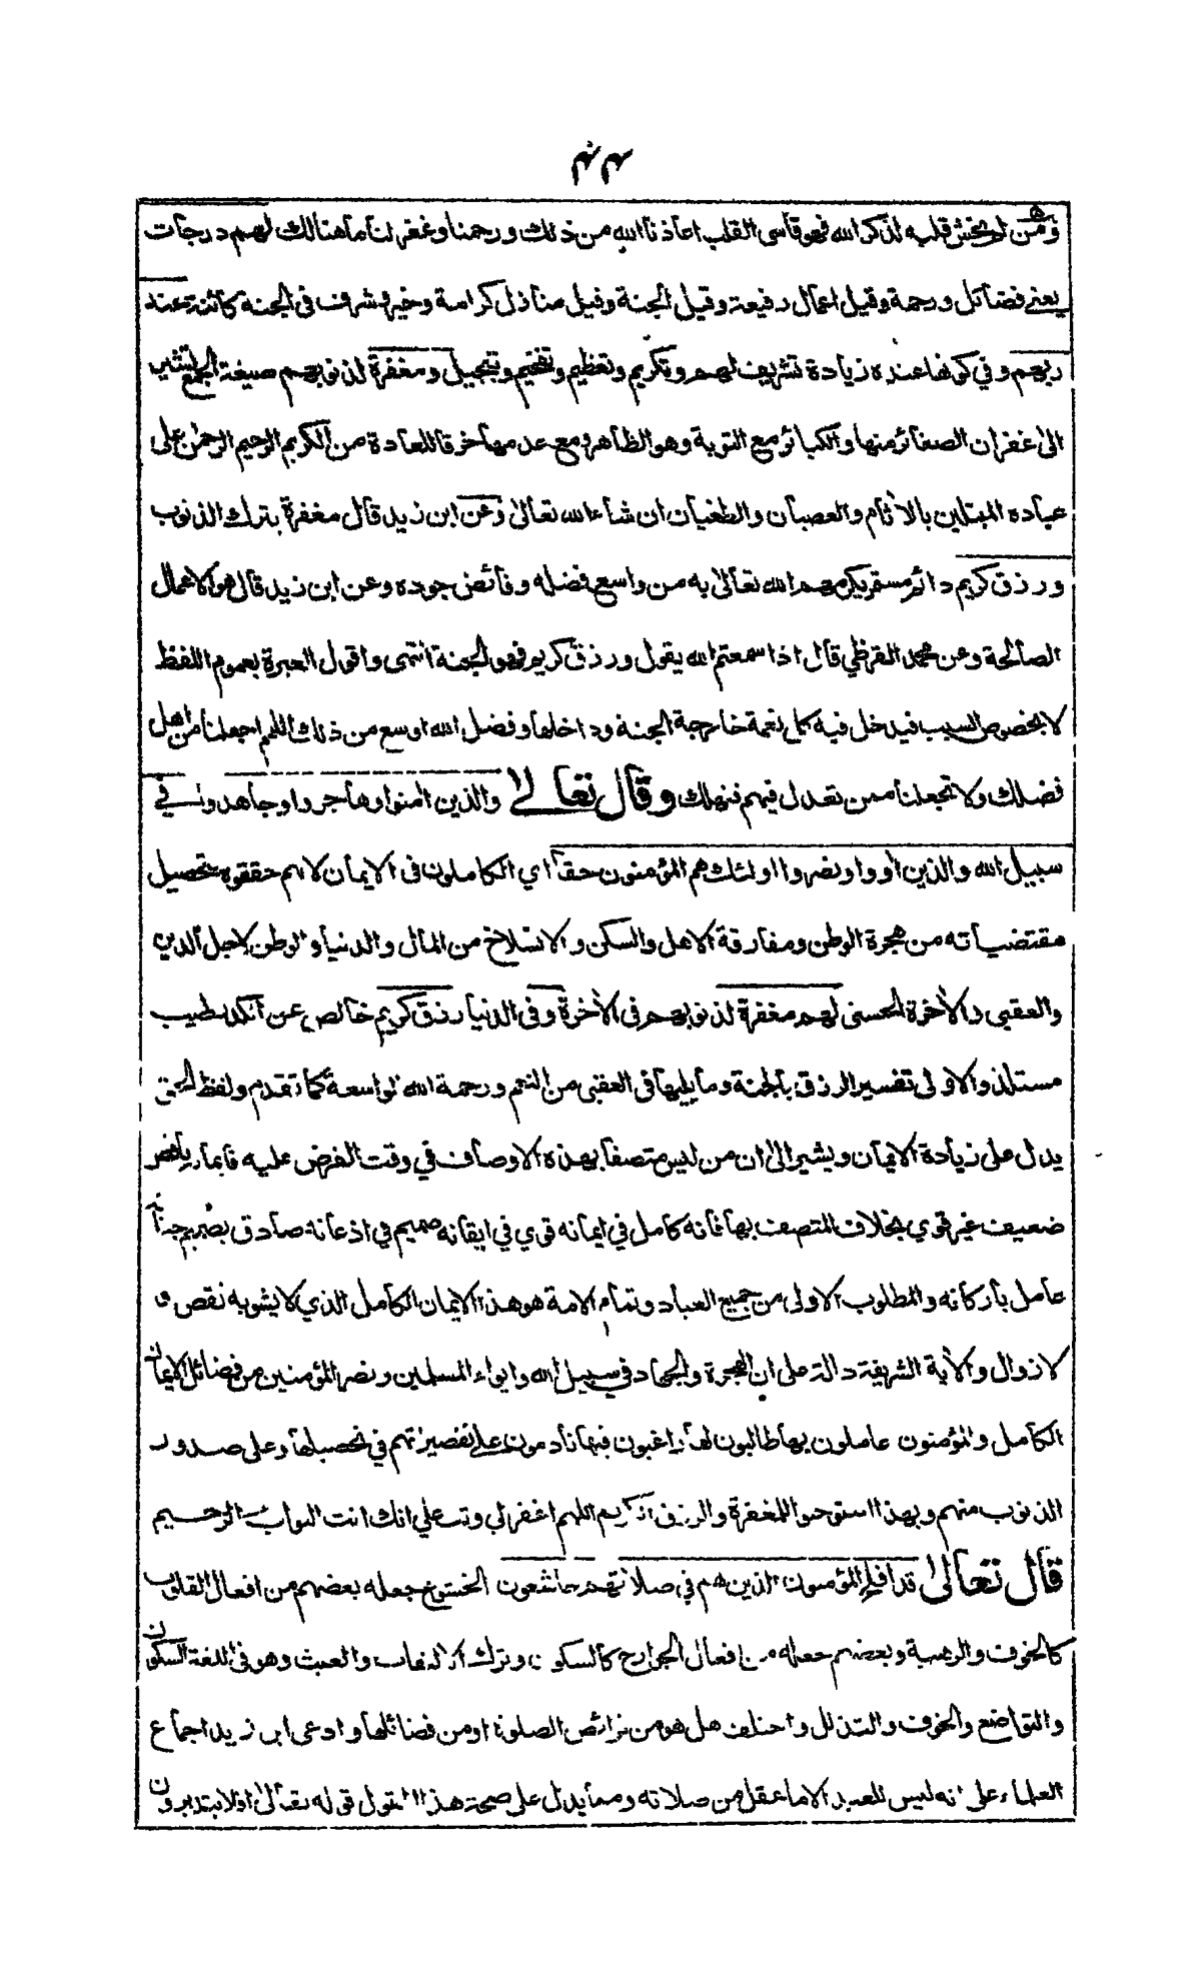 ومن لم يخش قلبه لذكر الله فهو قاسي القلب اعاذنا الله من ذلك ورحمنا وغفر لنا ما هنالك لهم درجات
يعني فضائل ورحمة وقيل اعمال رفيعة وقيل الجنة وقيل منازل كرامة وخير وشرف في الجنة كائنة عند
ربهم وفي كونها عنده زيادة تشريف لهم وتكريم وتعظيم وتفخيم وتبجيل ومغفرة لذنوبهم صيغة الجمع تشير
الى غفران الصغائر منها والكبائر مع التوبة وهو الظاهر ومع عدمها خرقا للعادة من الكريم الرحيم الرحمن على
عباده المبتلين بالآثام والعصيان والطغيان ان شاء الله تعالى وعن ابن زيد قال مغفرة بترك الذنوب
ورزق كريم دائم مستقر يكرمهم الله تعالى به من واسع فضله وفائض جوده وعن ابن زيد قال هو الاعمال
الصالحة وعن محمد القرظي قال اذا سمعتم الله يقول ورزق كريم فهو الجنة انتهى واقول العبرة بعموم اللفظ
لا بخصوص السبب فيدخل فيه كل نعمة خارجة الجنة وداخلها وفضل الله اوسع من ذلك اللهم اجعلنا من اهل
فضلك ولا تجعلنا ممن تعدل فيهم فنهلك وقال تعالى والذين آمنوا وهاجروا وجاهدوا في
سبيل الله والذين آووا ونصروا اولئك هم المؤمنون حقا اي الكاملون في الايمان لانهم حققوه بتحصيل
مقتضياته من هجرة الوطن ومفارقة الاهل والسكن والانسلاخ من المال والدنيا والوطن لاجل الدين
والعقبى والآخرة الحسنى لهم مغفرة لذنوبهم في الآخرة وفي الدنيا رزق كريم خالص عن الكد طيب
مستلذ والاولى تفسير الرزق بالجنة وما يليها في العقبى من النعم ورحمة الله الواسعة كما تقدم ولفظ الحق
يدل على زيادة الايمان ويشير الى ان من ليس متصفا بهذه الاوصاف في وقت الفرض عليه فايمانه ناقص
ضعيف غير قوي بخلاف المتصف بها فانه كامل في ايمانه قوي في ايقانه صميم في اذعانه صادق بضميرجنانه
عامل باركانه والمطلوب الاولى من جميع العباد وتمام الامة هو هذا الايمان الكامل الذي لا يشوبه نقص و
لا زوال والآية الشريفة دالة على ان الهجرة والجهاد في سبيل الله وايواء المسلمين ونصر المؤمنين من فضائل الايمان
الكامل والمؤمنون عاملون بها طالبون لها راغبون فيها نادمون على تقصيراتهم في تحصيلها وعلى صدور
الذنوب منهم وبهذا استوجبوا المغفرة والرزق الكريم اللهم اغفر لي وتب علي انك انت التواب الرحيم
قال تعالى قد افلح المؤمنون الذين هم في صلاتهم خاشعون الخشوع جعله بعضهم من افعال القلوب
كالخوف والرهبة وبعضهم جعله من افعال الجوارح كالسكون وترك الالتفات والعبث وهو في اللغة السكون
والتواضع والخوف والتذلل واختلف هل هو من فرائض الصلوة او من فضائلها وادعى ابن زيد اجماع
العلماء على انه ليس للعبد الا ما عقل من صلاته ومما يدل على صحة هذا القول قوله تعالى افلا يتدبرون